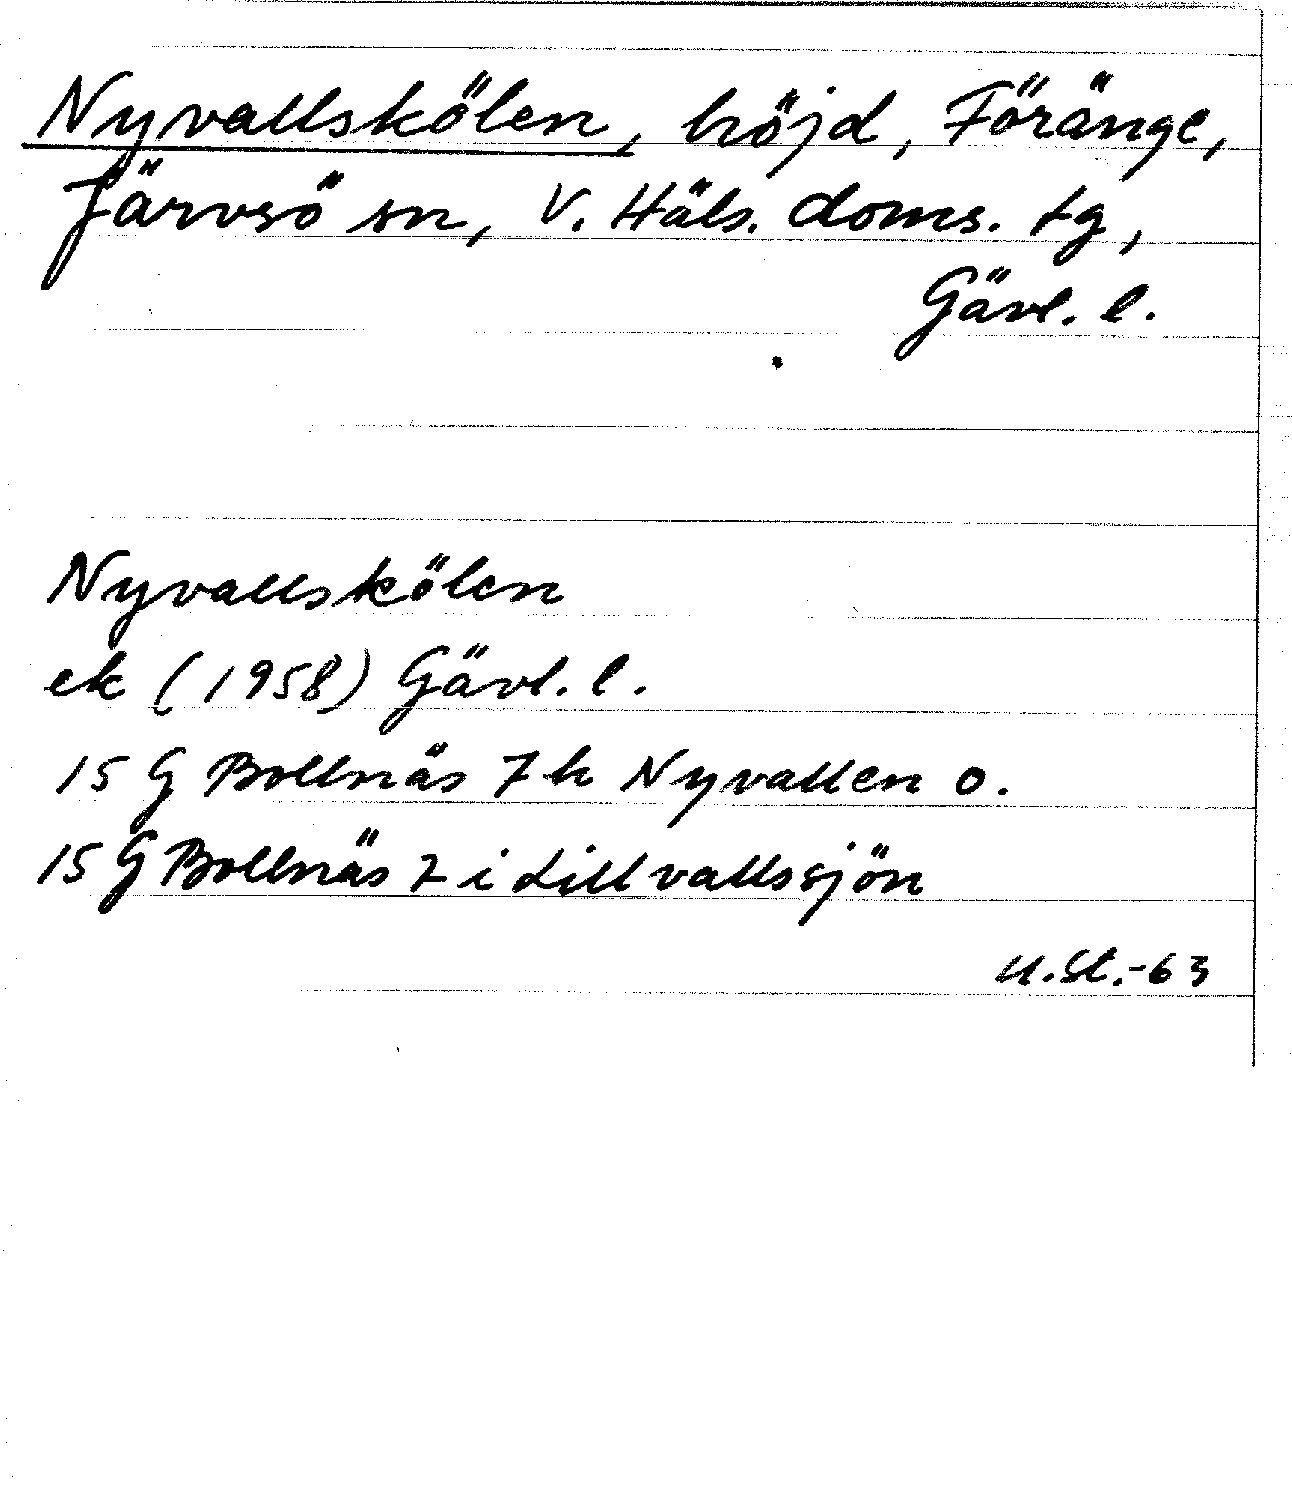 Nyvallskölen, höjd, Föränge,
Järvsö sn, V. Häls. doms. tg,
Gävl. l.
Nyvallskölen
ek (1958) Gävl. l.
15 G Bollnäs 7 h Nyvallen o.
15 G Bollnäs 7 i Lillvallssjön
U.St.-63